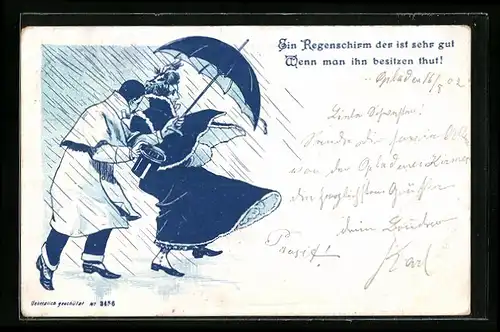 Ein Regenschirm der ist sehr gut
Wenn man ihn besitzen thut!
Opladen 16/5 02
Liebe Schwester!
Sende dir
von der Opladener Kirmes
die herzlichsten Grüße
dein Bruder
Prosit! Karl
Gesetzlich geschützt Nr 3456